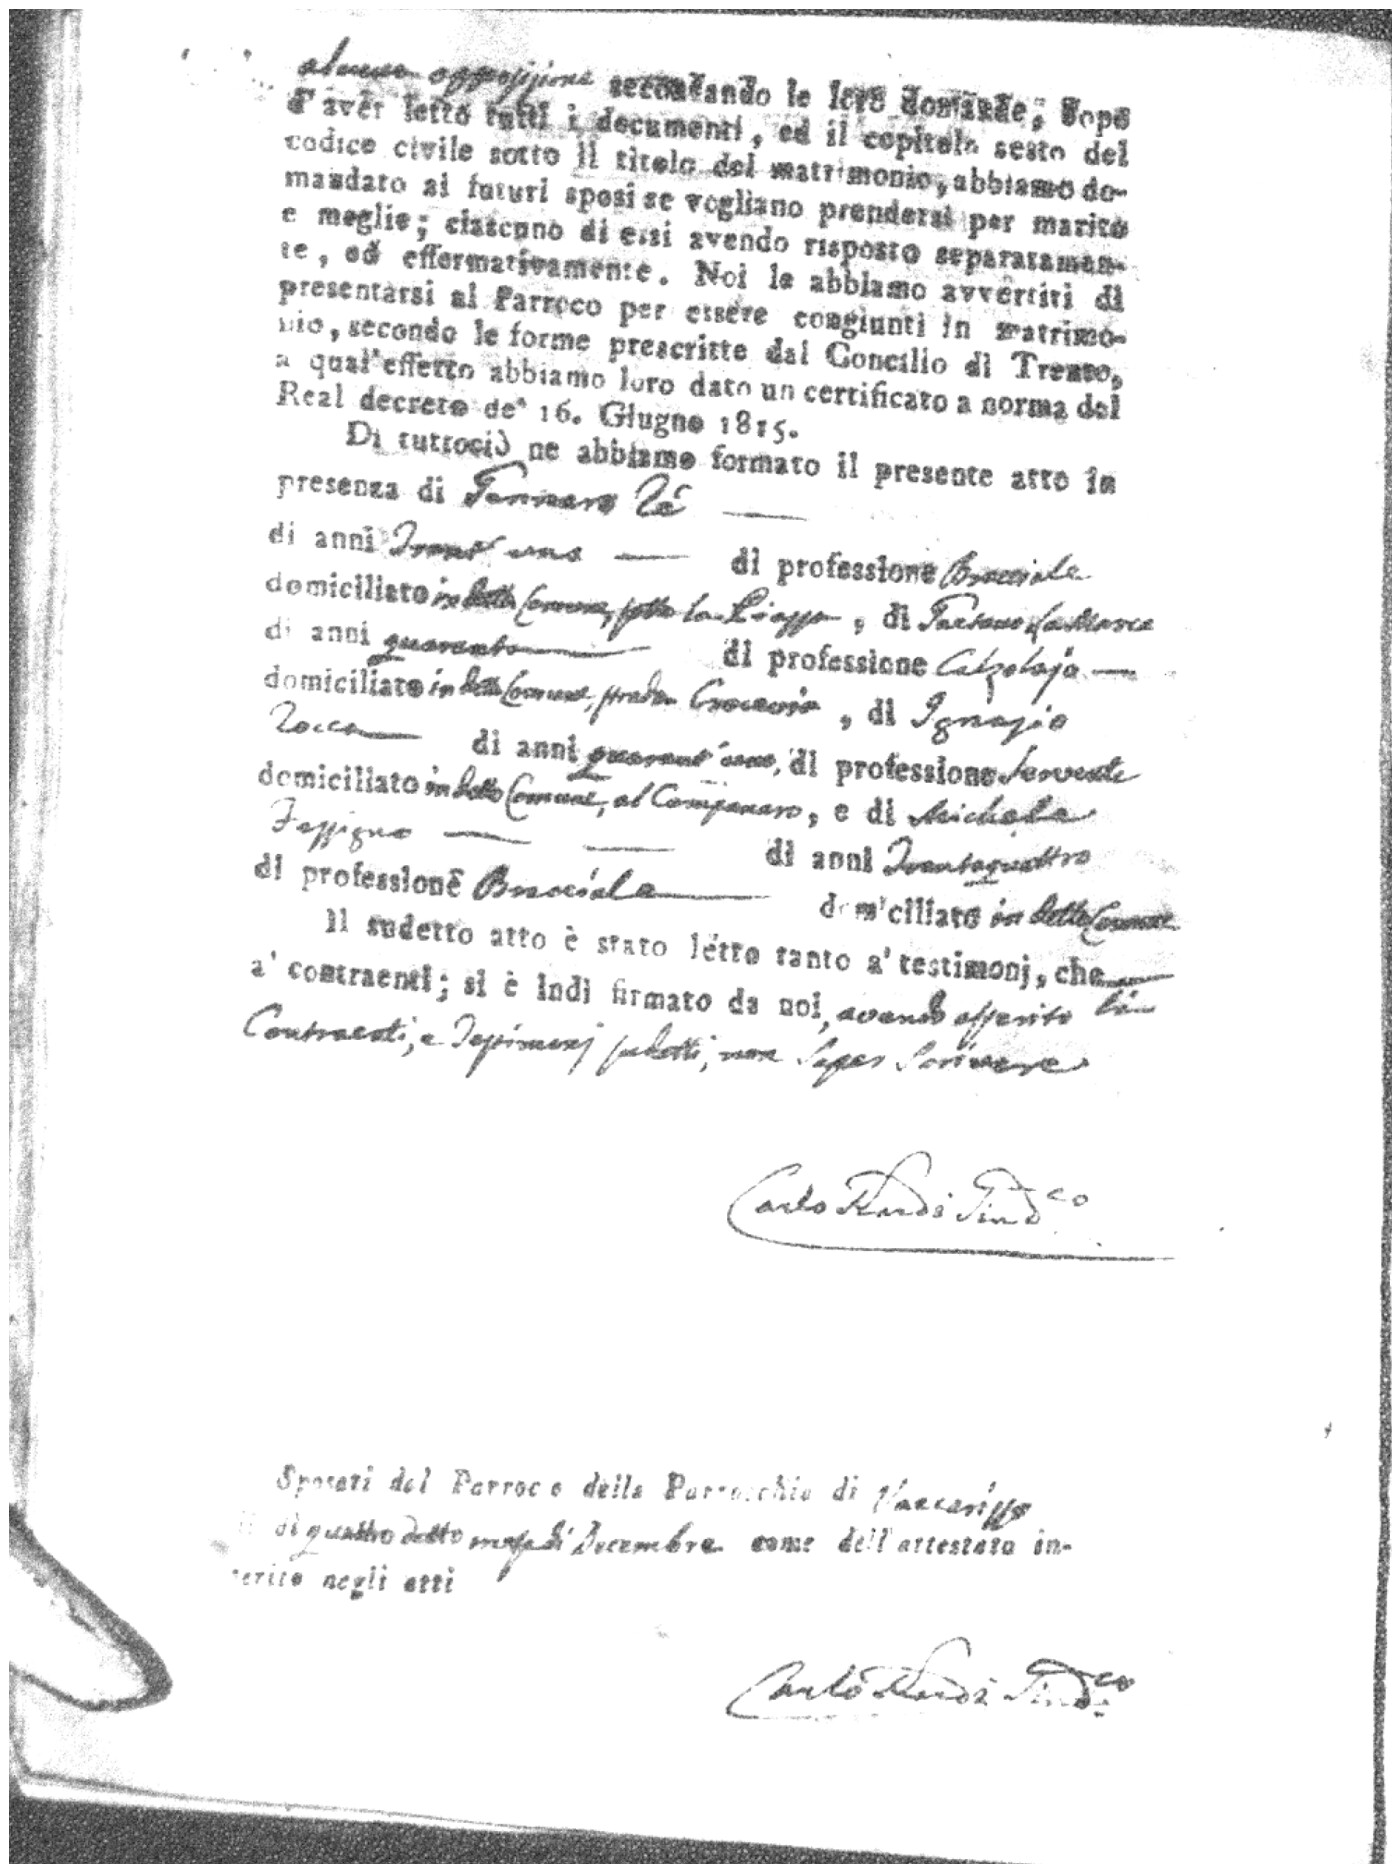 alcuna opposizione secondando le loro domande; dopo
d'aver letto tutti i documenti, ed il capitolo sesto del
codice civile sotto il titolo del matrimonio, abbiamo do-
mandato ai futuri sposi se vogliano prendersi per marito
e moglie; ciascuno di essi avendo risposto separatamen-
te, ed effermativamente. Noi le abbiamo avvertiti di
presentarsi al Parroco per essere congiunti in matrimo-
nio, secondo le forme prescritte dal Concilio di Trento,
a qual'effetto abbiamo loro dato un certificato a norma del
Real decreto de' 16. Giugno 1815.
Di tuttociò ne abbiamo formato il presente atto in
presenza di Gennaro
di anni Trent'uno di professione Bracciale
domiciliato in detta Comune, sotto la Piazza, di Gaetano La Marca
di anni quaranta di professione Calzolajo
domiciliato in detta Comune, strada Crocevia, di Ignazio
Zocca di anni quarant'uno, di professione Servente
domiciliato in detta Comune, al Campanaro, e di Michele
di anni Trentaquattro
di professione Bracciale domiciliato in detta Comune
Il sudetto atto è stato letto tanto a' testimonj, che
a' contraenti; si è indi firmato da noi, avendo asserito li
Contraenti, e Testimonj sudetti, non saper scrivere
Carlo Sind.co
Sposati dal Parroco della Parrocchia di Vaccarizzo
il dì quattro detto mese di Decembre come dell'attestato in-
serito negli atti
Carlo Sind.co